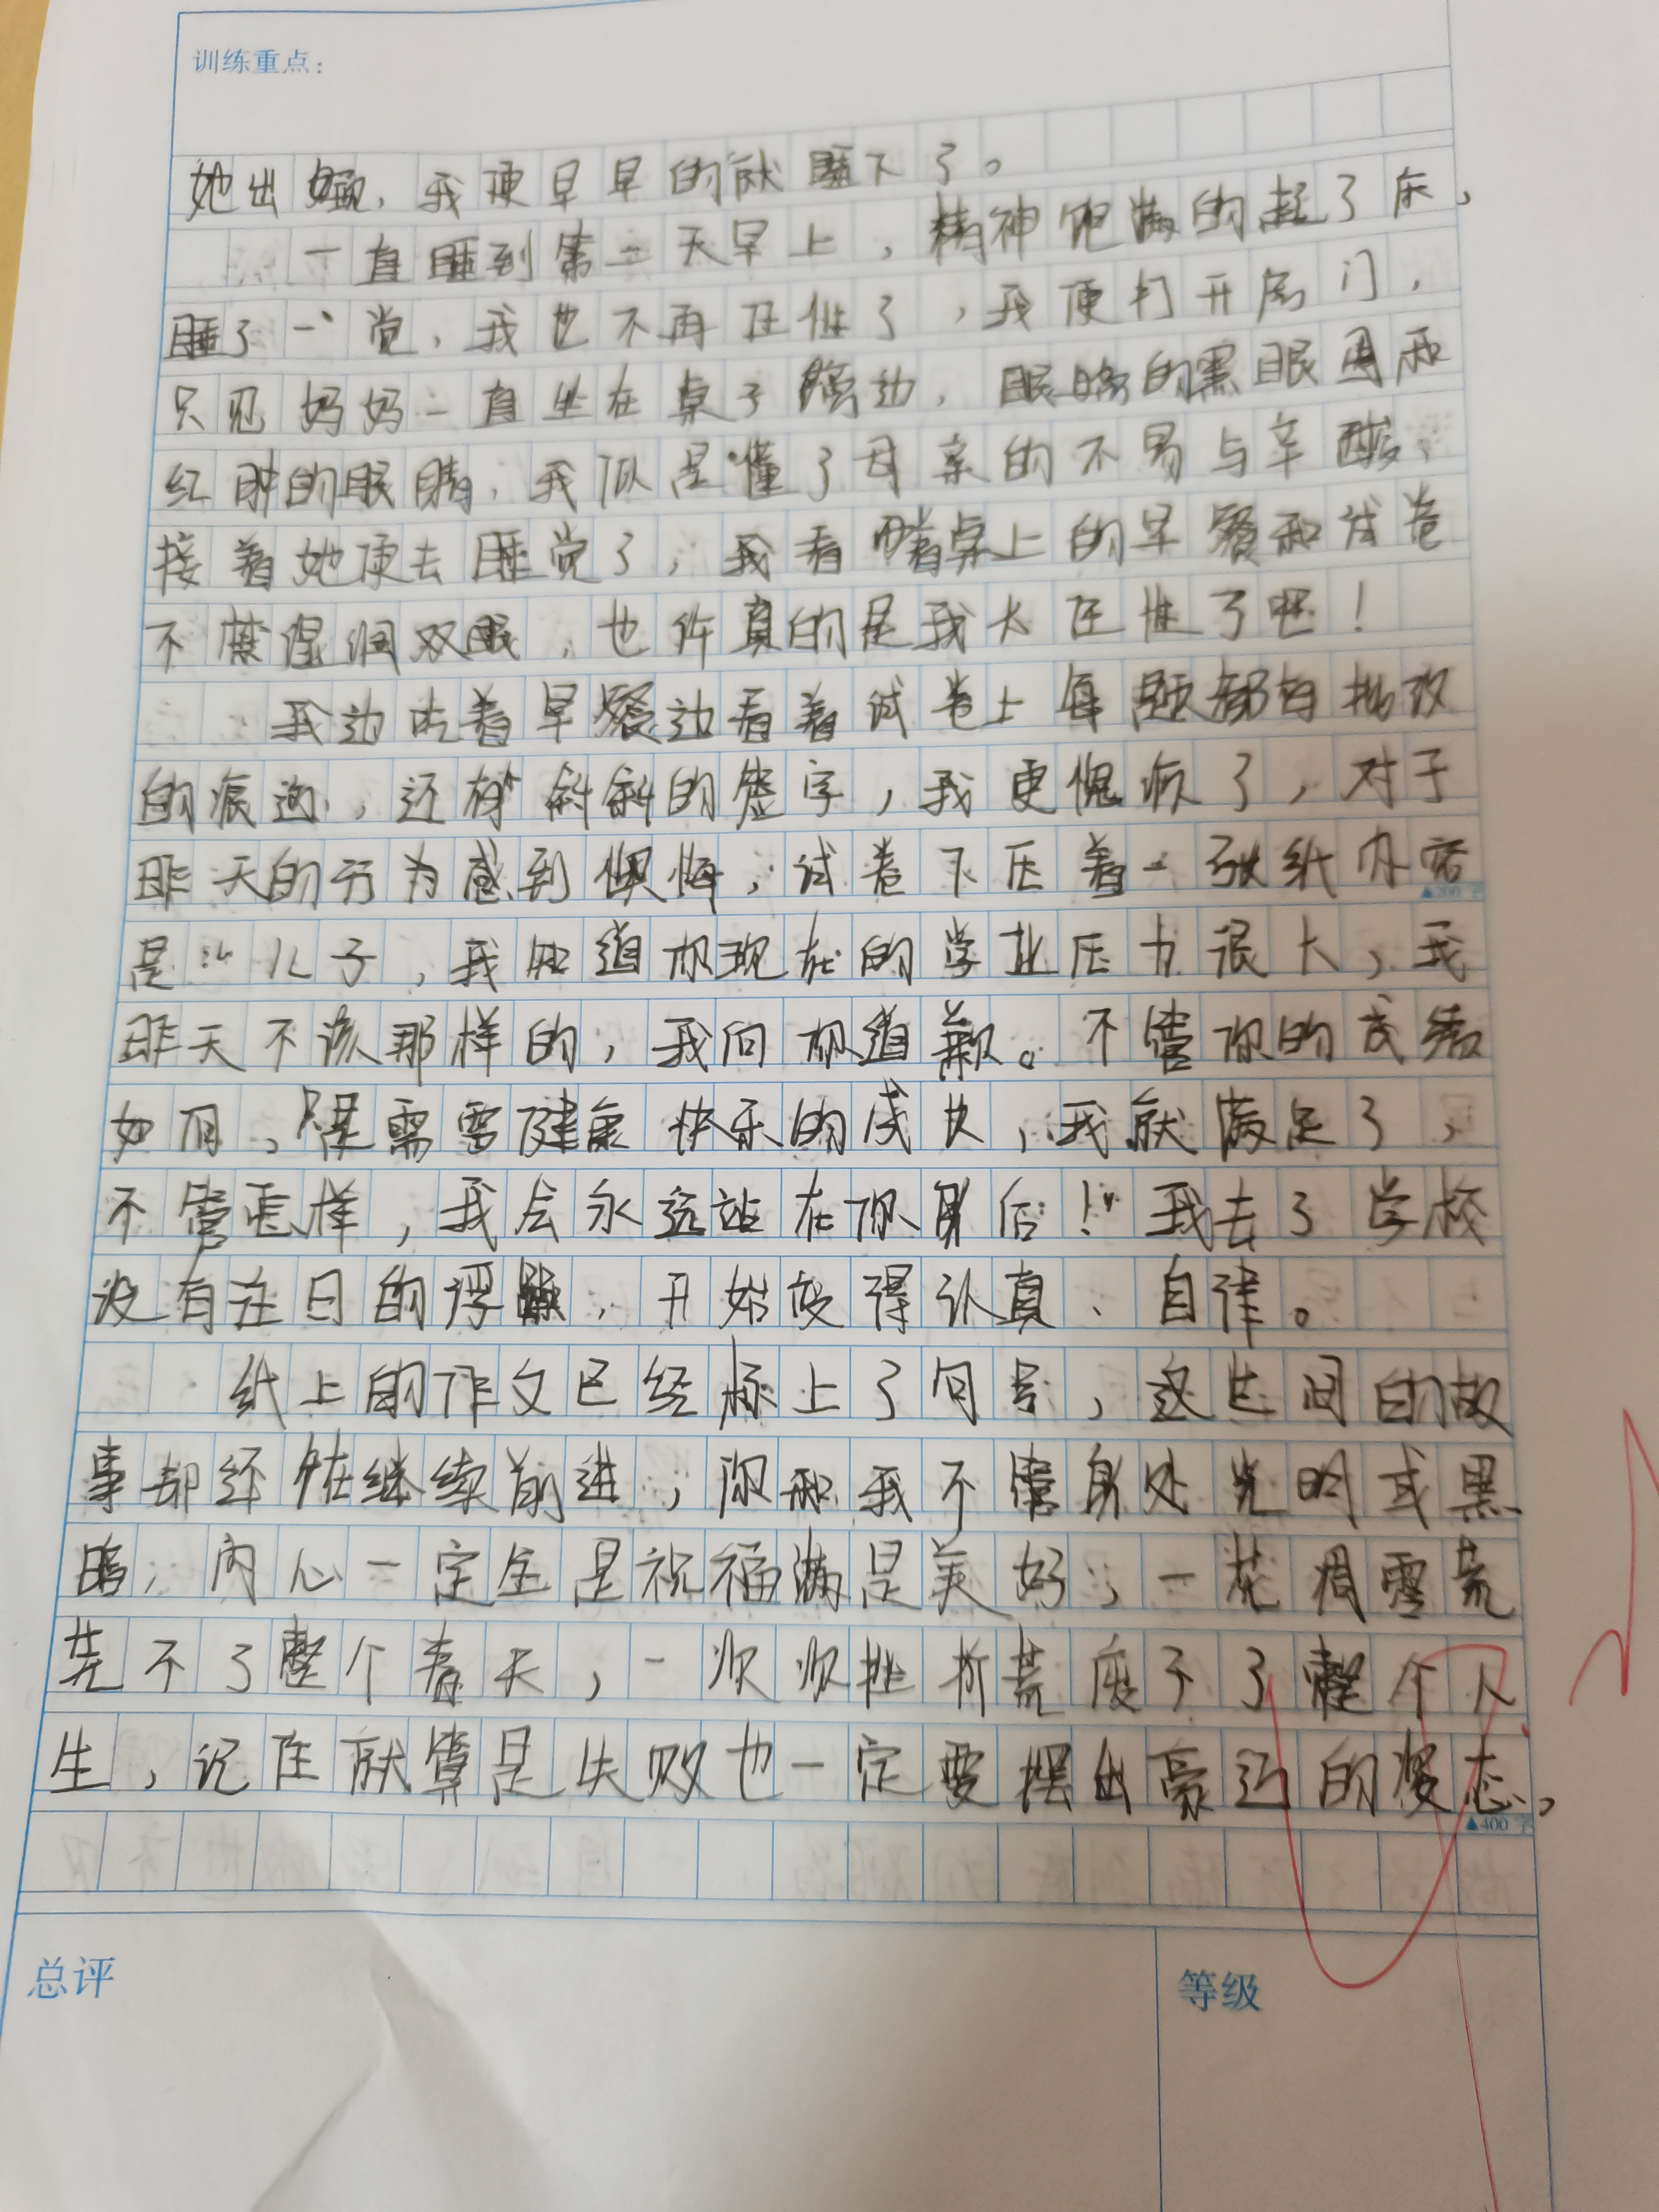 训练重点：
她出嫁，我便早早的就睡下了。
一直睡到第二天早上，精神饱满的起了床，
睡了一觉，我也不再任性了，我便打开房门，
只见妈妈一直坐在桌子旁边，眼睛的黑眼圈和
红肿的眼睛，我似是懂了母亲的不易与辛酸，
接着她便去睡觉了，我看着桌上的早餐和试卷
不禁湿润双眼，也许真的是我太任性了吧！
我边吃着早餐边看着试卷上每题都有批改
的痕迹，还有斜斜的签字，我更愧疚了，对于
昨天的行为感到懊悔，试卷下压着一张纸内容
是“儿子，我知道你现在的学业压力很大，我
昨天不该那样的，我向你道歉。不管你的成绩
如何，只是需要健康快乐的成长，我就满足了，
不管怎样，我会永远站在你身后！”我去了学校
没有往日的浮躁，开始变得认真、自律。
纸上的作文已经标上了句号，这世间的故
事却还在继续前进，你和我不管身处光明或黑
暗，内心一定全是祝福满是美好，一花凋零荒
芜不了整个春天，一次次挫折荒废不了整个人
生，记住就算是失败也一定要摆出豪迈的姿态，
▲200字
▲400字
总评
等级